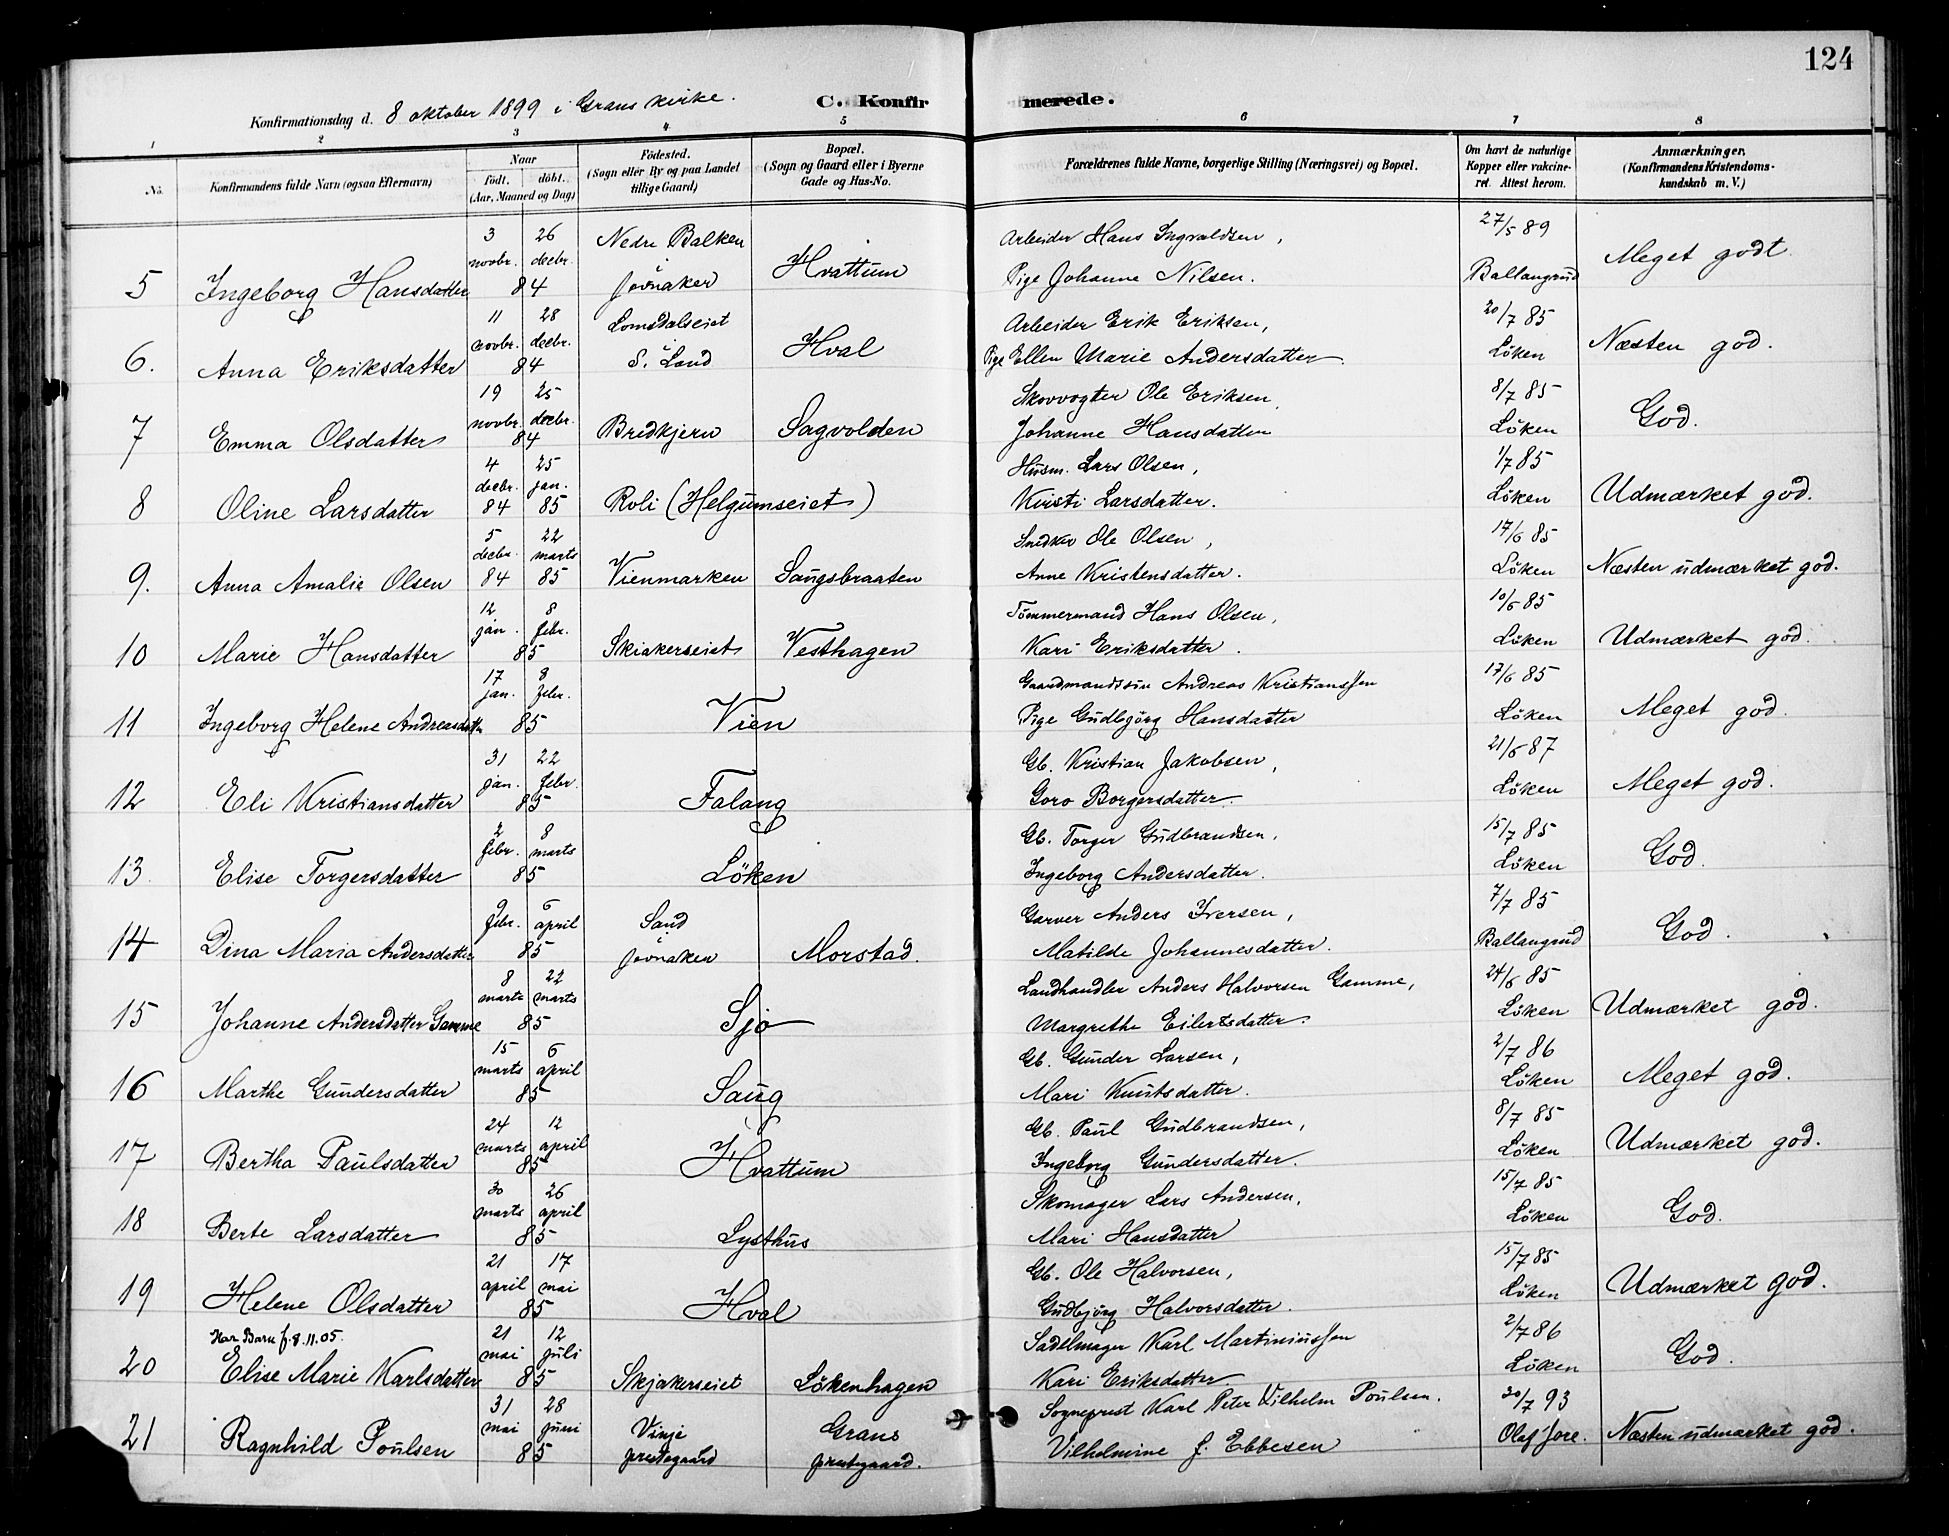 124
Konfirmationsdag d. 8 oktober 1899 i Grans kirke. C. Konfirmerede.
1 2 3 4 5 6 7 8
No. Konfirmandens fulde Navn (ogsaa Efternavn) Naar født. døbt. (Aar, Maaned og Dag) Fødested. (Sogn eller By og paa Landet tillige Gaard) Bopæl. (Sogn og Gaard eller i Byerne Gade og Hus-No. Forældrenes fulde Navne, borgerlige Stilling (Næringsvei) og Bopæl. Om havt de naturlige Kopper eller vakcineret. Attest herom. Anmærkninger, (Konfirmandens Kristendomskundskab m. V.)
3 26 Nedre Balken Arbeider Hans Ingvaldsen, 27/5 89
5 Ingeborg Hansdatter novbr. decbr. 84 Jevnaker Hvattum Pige Johanne Nilsen. Ballangrud Meget godt
11 28 Lomsdalseiet Arbeider Erik Eriksen, 20/7 85
6. Anna Eriksdatter novbr. decbr. 84 S. Land Hval Pige Ellen Marie Andersdatter Löken Næsten god.
19 25 Skovvogter Ole Eriksen, 8/7 85
7 Emma Olsdatter novbr. decbr. 84 Bredkjern Sagvolden Johanne Hansdatter Löken God.
4 25 Husm. Lars Olsen, 1/7 85
8 Oline Larsdatter decbr. jan. 84 85 Roli (Helgumseiet) Kirsti Larsdatter. Löken Udmærket god.
5 22 Snedker Ole Olsen, 17/6 85
9. Anna Amalie Olsen decbr. marts 84 85 Vienmarken Saugsbraaten Anne Kristensdatter. Löken Næsten udmærket god.
12 8 Tömmermand Hans Olsen, 10/6 85
10 Marie Hansdatter jan. febr. 85 Skiakerseiet Vesthagen Kari Eriksdatter. Löken Udmærket god.
17 8 Gaardmandssön Andreas Kristianssen 17/6 85
11 Ingeborg Helene Andreasdatter jan. febr. 85 Vien Pige Gudbjörg Hansdatter Löken Meget god.
31 22 Gb. Kristian Jakobsen, 21/6 87
12 Eli Kristiansdatter jan. febr. 85 Falang Goro Borgersdatter. Löken Meget god.
2 8 Gb. Torger Gudbrandsen, 15/7 85
13 Elise Torgersdatter febr. marts 85 Löken Ingeborg Andersdatter. Löken God.
9 6 Sand Garver Anders Iversen, 7/7 85
14 Dina Maria Andersdatter febr. april 85 Jevnaker Morstad. Matilde Johannesdatter. Ballangrud God.
8 22 Landhandler Anders Halvorsen Gamme, 24/6 85
15 Johanne Andersdatter Gamme marts marts 85 Sjo Margrethe Eilertsdatter. Löken Udmærket god.
15 6 Gb. Gunder Larsen, 2/7 86
16 Marthe Gundersdatter marts april 85 Saug Mari Knutsdatter. Löken Meget god.
24 12 Gb. Paul Gudbrandsen, 8/7 85
17 Bertha Paulsdatter marts april 85 Hvattum Ingeborg Gundersdatter. Löken Udmærket god.
30 26 Skomager Lars Andersen, 15/7 85
18 Berte Larsdatter marts april 85 Lysthus Mari Hansdatter Löken God.
21 17 Gb. Ole Halvorsen, 15/7 85
19 Helene Olsdatter april mai 85 Hval Gudbjörg Halvorsdatter. Löken Udmærket god.
Har Barn f. 8.11.05. 21 12 Sadelmager Karl Martiniussen 2/7 86
20 Elise Marie Karlsdatter mai juli 85 Skjakerseiet Lökenhagen Kari Eriksdatter. Löken God.
31 28 Vinje Grans Sogneprest Karl Peter Vilhelm Poulsen. 20/7 93
21 Ragnhild Poulsen mai juni 85 prestegaard prestegaard. Vilhelmine f. Ebbesen Olaf Jore. Næsten udmærket god.